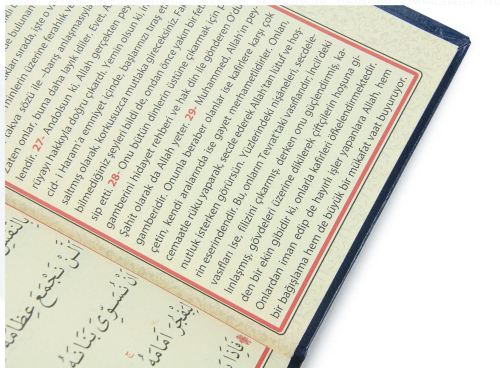 de bulunan
rakları sıradı, işte o v
minlerin üzerine ferahlık ve
takva sözü ile –barış anlaşmasıyla
Zaten onlar, buna daha layık idiler. Evet, A
lendir. 27- Andolsun ki, Allah gerçekten pey
rüyayı hakkıyla doğru çıkardı. Yemin olsun ki in
cid- i Haram'a emniyet içinde, başlarınızı tıraş et
saltmış olarak, korkusuzca mutlaka gireceksiniz. Fa
bilmediğiniz şeyleri bildi de, ondan önce yakın bir fet
sip etti. 28- Onu bütün dinlerin üstüne çıkarmak için p
gamberini hidayet rehberi ve hak din ile gönderen O'd
Şahit olarak da Allah yeter. 29- Muhammed, Allah'ın pey-
gamberidir. Onunla beraber olanlar ise kafirlere karşı çok
çetin, kendi aralarında ise gayet merhametlidirler. Onları,
cemaatle rüku yaparak, secde ederek Allah'tan lütuf ve hoş-
nutluk isterken görürsün. Yüzlerindeki nişaneleri, secdele-
rin eserindendir. Bu, onların Tevrat'taki vasıflarıdır. İncil'deki
vasıfları ise, filizini çıkarmış, derken onu güçlendirmiş, ka-
lınlaşmış, gövdeleri üzerine dikilerek çiftçilerin hoşuna gi-
den bir ekin gibidir ki, onlarla kafirleri öfkelendirmektedir.
Onlardan iman edip de hayırlı işler yapanlara Allah, hem
bir bağışlama hem de büyük bir mükafat vaat buyuruyor.
اَلَّنْ نَجْمَعَ عِظَامَهُ
اَنْ نُسَوِّىَ بَنَانَهُ
لِيَفْجُرَ اَمَامَهُ
فَاِذَا بَ